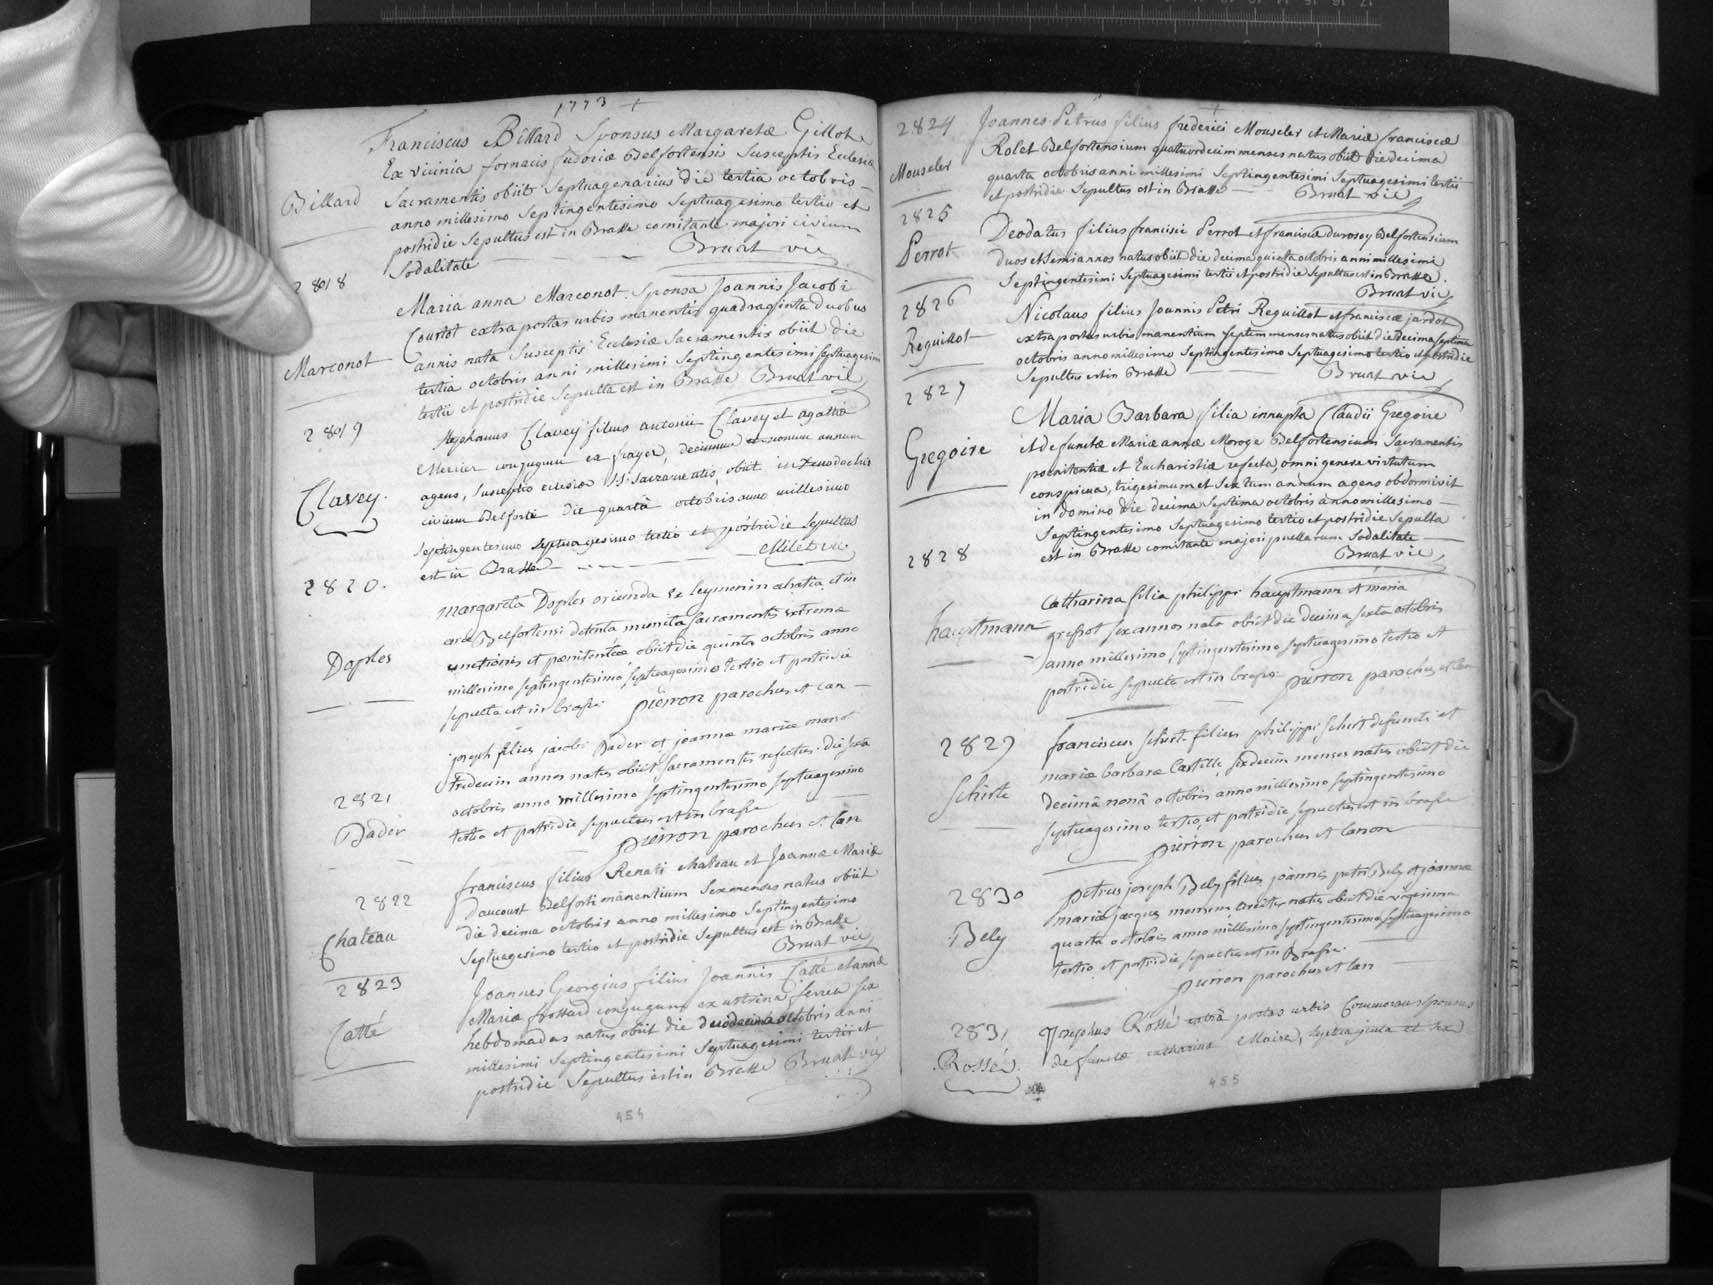 1773 +
Franciscus Billard Sponsus Margaretæ Gillot
Ex vicinia fornacis fusoriæ Belfortensis Susceptis Ecclesiæ
Billard
Sacramentis obiit Septuagenarius die tertia octobris
anno millesimo Septingentesimo Septuagesimo tertio et
postridie Sepultus est in Brasse comitante majori civium
Sodalitate Bruat vic
2818
Marconot
Maria anna Marconot Sponsa Joannis Jacobi
Courtot extra portas urbis manentis quadraginta duobus
annis nata Susceptis Ecclesiæ Sacramentis obiit die
tertia octobris anni millesimi Septingentesimi Septuagesimi
tertii et postridie Sepulta est in Brasse Bruat vic
2819
Clavey
Stephanus Clavey filius antonii Clavey et agatha
Mercier conjugum ex frayer, decimum nonum annum
agens, Susceptis ecclesiæ SS. Sacramentis, obiit in Xenodochio
civium Belforti die quarta octobris anno millesimo
Septingentesimo Septuagesimo tertio et postridie Sepultus
est in Brasse Milet vic
2820.
Doples
Margareta Doples oriunda ex Leymen in alsatia et in
arce Belfortensi detenta munita Sacramentis extremæ
unctionis et pœnitentiæ obiit die quinta octobris anno
millesimo Septingentesimo Septuagesimo tertio et postridie
sepulta est in brasse pierron parochus et can
2821
Bader
joseph filius jacobi Bader et joannæ mariæ monnot
tredecim annos natus obiit sacramentis refectus die sexta
octobris anno millesimo septingentesimo septuagesimo
tertio et postridie sepultus est in brasse
pierron parochus et can
2822
Chateau
franciscus filius Renati chateau et Joannæ Mariæ
Daucourt Belforti manentium Sex menses natus obiit
die decima octobris anno millesimo Septingentesimo
Septuagesimo tertio et postridie Sepultus est in Brasse
Bruat vic
2823
Catté
Joannes Georgius filius Joannis Catté et annæ
Mariæ frossard conjugum ex ustrina ferrea sex
hebdomadas natus obiit die duodecima octobris anni
millesimi Septingentesimi Septuagesimi tertii et
postridie Sepultus est in Brasse Bruat vic
454
+
2824
Mouseler
Joannes Petrus filius frederici Mouseler et Mariæ franciscæ
Rolet Belfortensium quatuordecim menses natus obiit die decima
quarta octobris anni millesimi Septingentesimi Septuagesimi tertii
et postridie Sepultus est in Brasse Bruat vic
2825
Perrot
Deodatus filius francisci Perrot et franciscæ durosoy Belfortensium
duos et semi annos natus obiit die decima quinta octobris anni millesimi
Septingentesimi Septuagesimi tertii et postridie Sepultus est in Brasse.
Bruat vic
2826
Reguillot
Nicolaus filius Joannis Petri Reguillot et franciscæ jardot
extra portas urbis manentium septem menses natus obiit die decima septima
octobris anno millesimo Septingentesimo Septuagesimo tertio et postridie
Sepultus est in Brasse Bruat vic
2827
Gregoire
Maria Barbara filia innupta Claudii Gregoire
et defunctæ Mariæ annæ Moroge Belfortensium Sacramentis
pœnitentiæ et Eucharistiæ refecta, omni genere virtutum
conspicua, trigesimum et Sextum annum agens obdormivit
in domino die decima Septima octobris anno millesimo
Septingentesimo Septuagesimo tertio et postridie Sepulta
est in Brasse comitante majori puellarum Sodalitate
Bruat vic
2828
hauptmann
Catharina filia philippi hauptmann et maria
gressot sex annos nata obiit die decima sexta octobris
anno millesimo septingentesimo septuagesimo tertio et
postridie sepulta est in brasse pierron parochus et can
2829
Schirt
franciscus Schirt filius philippi Schirt defuncti et
mariæ barbaræ Castille, sexdecim menses natus obiit die
decimâ nonâ octobris anno millesimo septingentesimo
septuagesimo tertio, et postridie sepultus est in brasse
pierron parochus et canon
2830
Bely
petrus joseph Bely filius joannis petri Bely et joannæ
mariæ jacques natus obiit die vigesima
quarta octobris anno millesimo septingentesimo septuagesimo
tertio et postridie sepultus est in Brasse.
pierron parochus et can
2831
Rossé.
Josephus Rossé extrà portas urbis Commorans Sponsus
defunctæ catharinæ Maire, septuaginta et sex
455